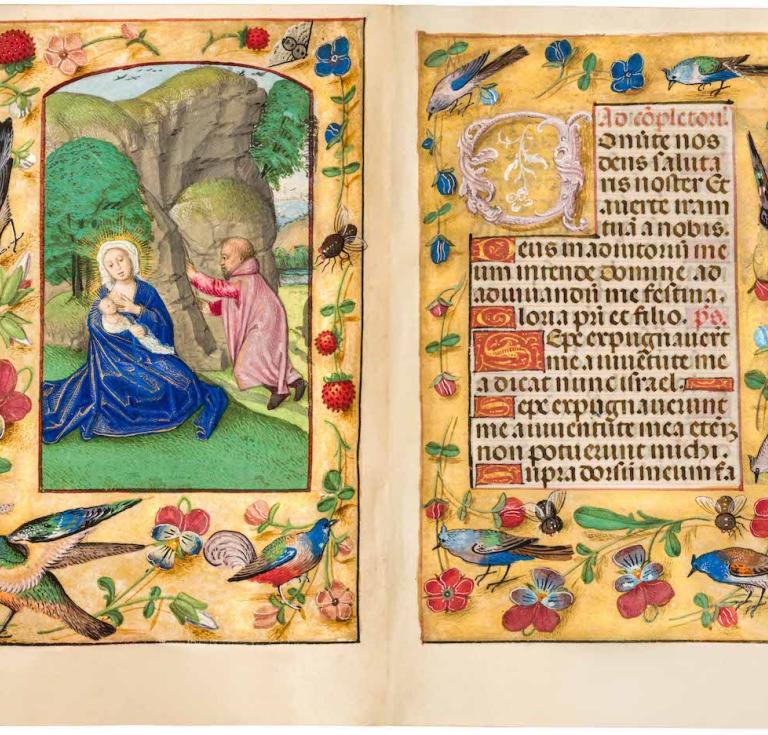 Ad cōpletoriū
Conūte nos
deus saluta
ris noster Et
auerte iram
tuā a nobis.
Deus in adiutoriū me
um intende Domine ad
adiuuandū me festina.
Gloria pr̄i et filio. ps.
Sepe expugnauerūt
me a iuuētute me
a dicat nunc israel.
Sepe expugnauerunt
me a iuuentute mea eteīz
non potuerunt michi.
Supra dorsū meum fa